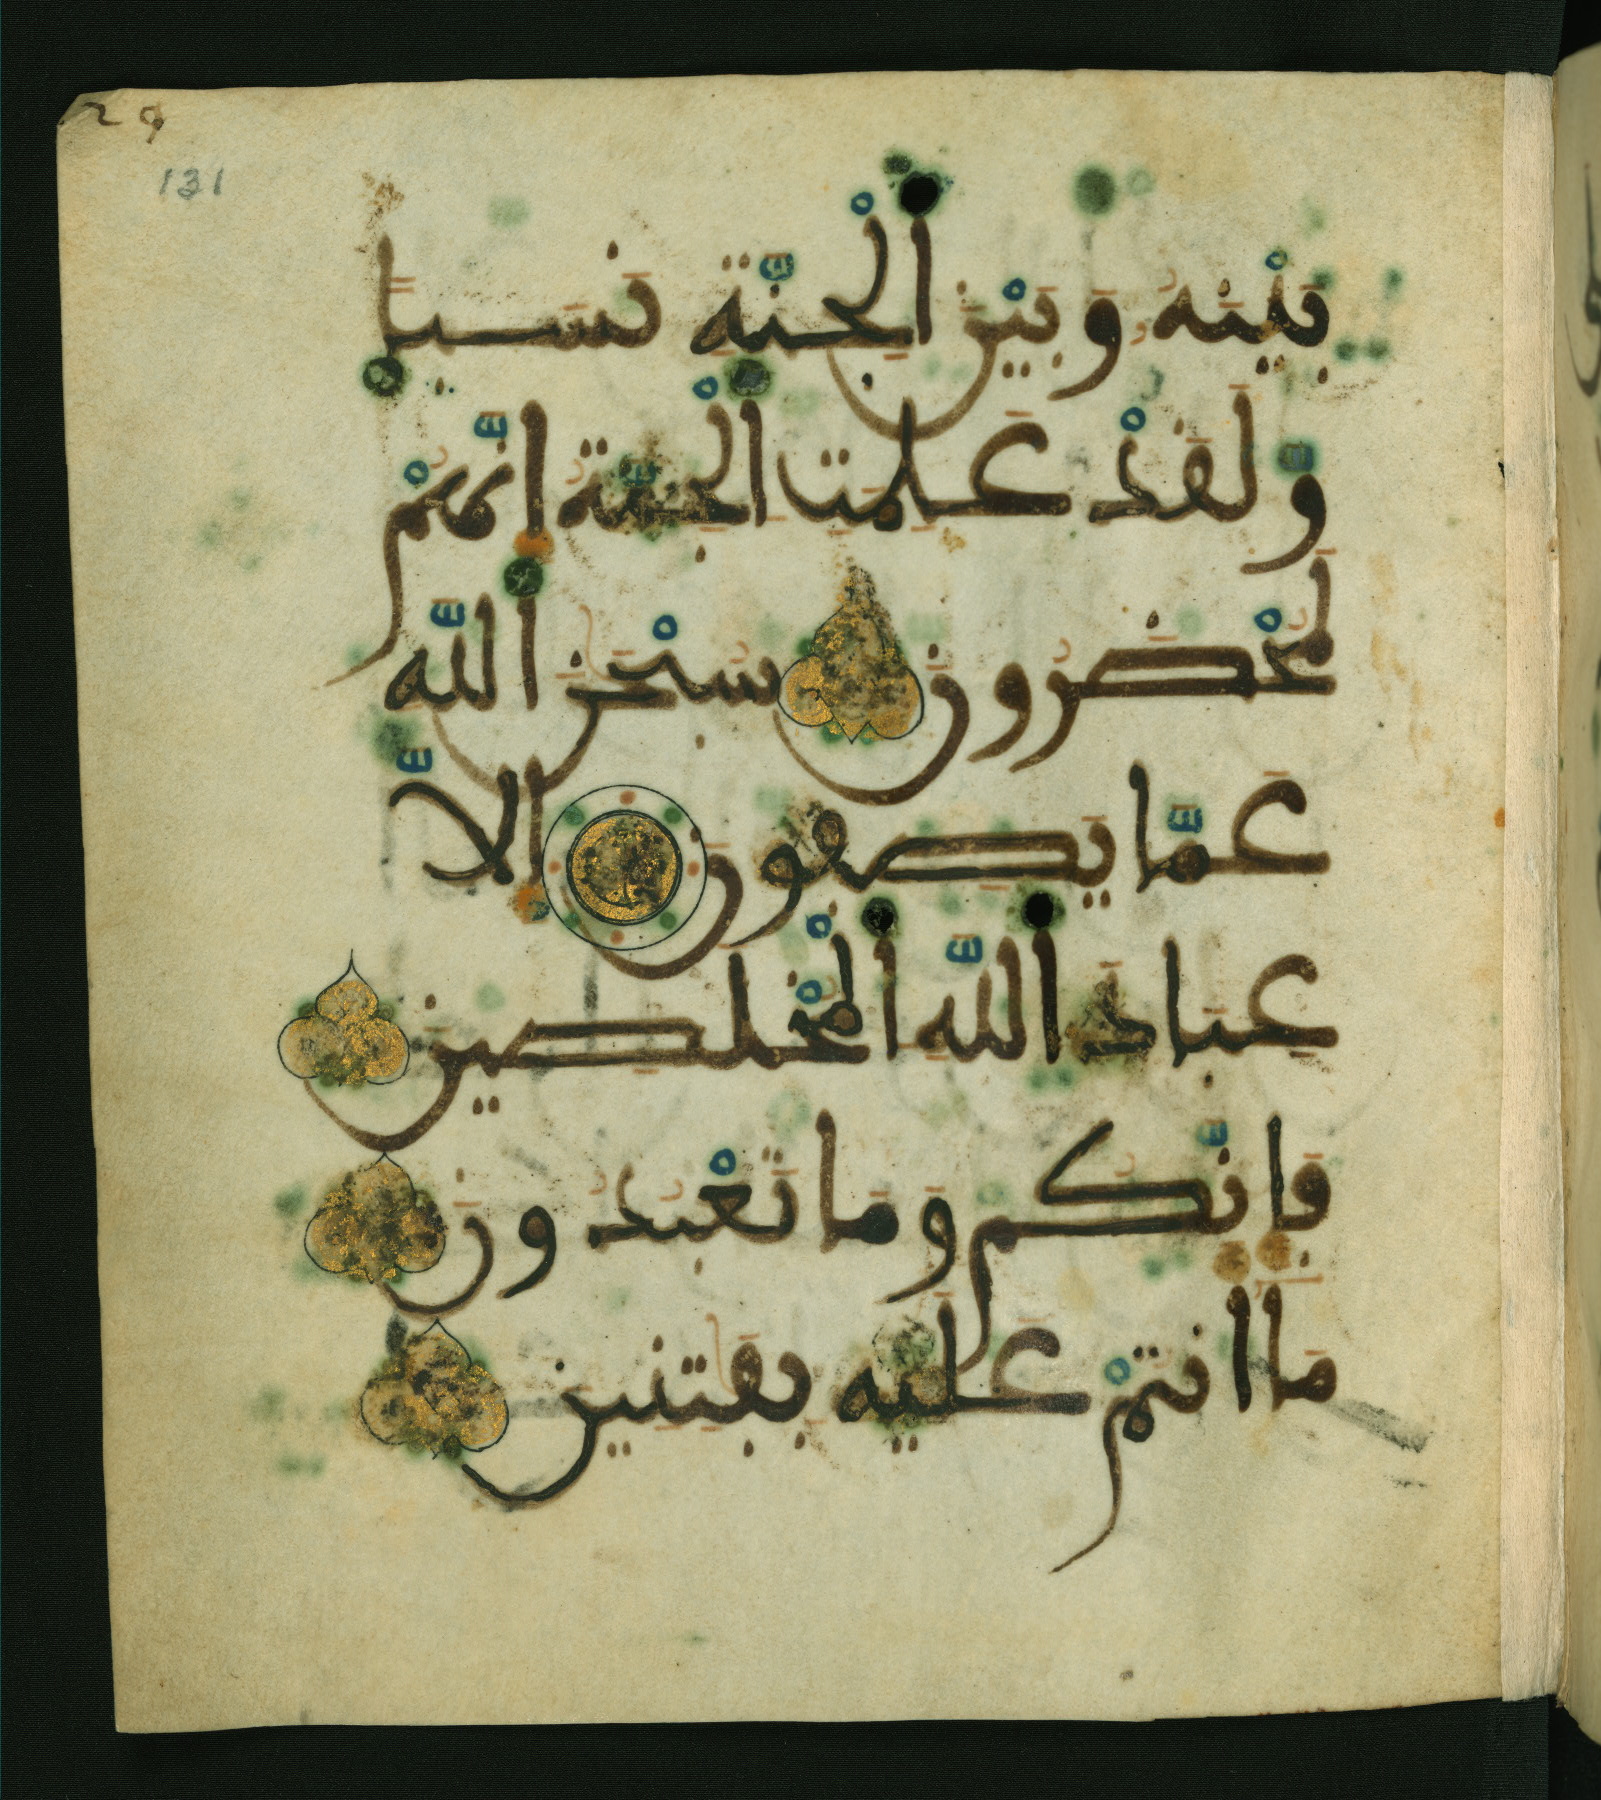 29
131
بَيْنَهُ وَبَيْنَ الْجِنَّةِ نَسَبًا
وَلَقَدْ عَلِمَتِ الْجِنَّةُ إِنَّهُمْ
لَمُحْضَرُونَ سُبْحَٰنَ اللَّهِ
عَمَّا يَصِفُونَ إِلَّا
عِبَادَ اللَّهِ الْمُخْلِصِينَ
فَإِنَّكُمْ وَمَا تَعْبُدُونَ
مَا أَنتُمْ عَلَيْهِ بِفَٰتِنِينَ